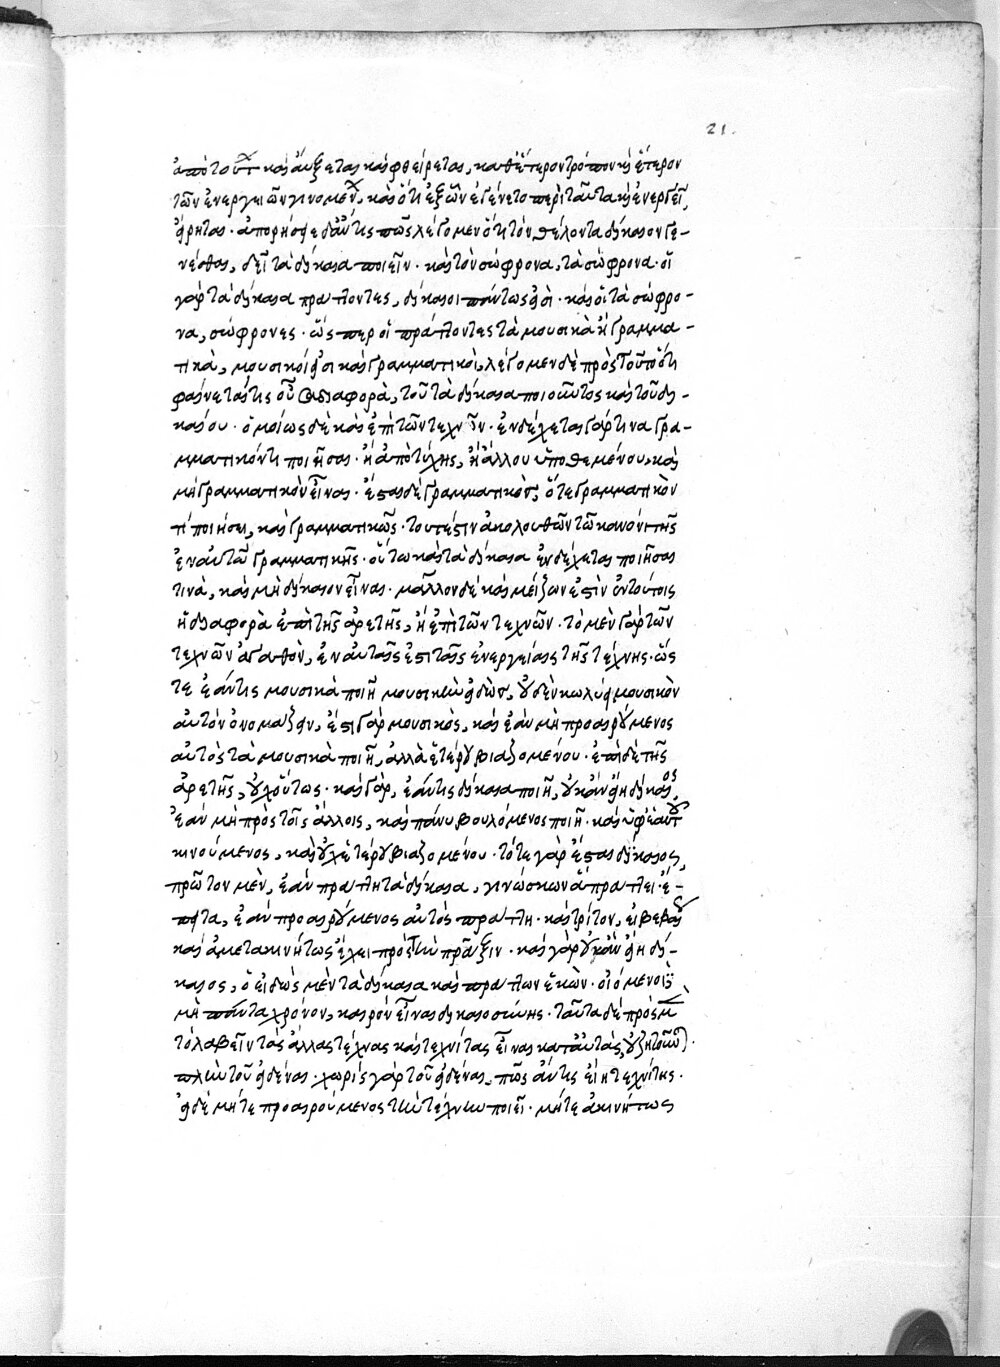 21.
ἀπὸ τούτ καὶ αὔξεται καὶ φθείρεται, καθ' ἕτερον τρόπον καὶ ἕτερον
τῶν ἐνεργειῶν γινομέν, καὶ ὅτι ἐξ ὧν ἐγένετο περὶ ταῦτα καὶ ἐνεργεῖ,
εἴρηται. ἀπορήσειε δ' ἄν τις πῶς λέγομεν ὅτι τὸν θέλοντα δίκαιον γε-
νέσθαι, δεῖ τὰ δίκαια ποιεῖν. καὶ τὸν σώφρονα, τὰ σώφρονα. οἱ
γὰρ τὰ δίκαια πράττοντες, δίκαιοι πάντως εἰσί. καὶ οἱ τὰ σώφρο-
να, σώφρονες. ὥσπερ οἱ πράττοντες τὰ μουσικὰ ἢ γραμμα-
τικὰ, μουσικοί εἰσι καὶ γραμματικοὶ, λέγομεν δὲ πρὸς τοῦτο ὅτι
φαίνεταί τις οὖσα διαφορὰ, τοῦ τὰ δίκαια ποιοῦντος καὶ τοῦ δι-
καίου. ὁμοίως δὲ καὶ ἐπὶ τῶν τεχνῶν. ἐνδέχεται γάρ τινα γρα-
μματικόν τι ποιῆσαι. ἢ ἀπὸ τύχης, ἢ ἄλλου ὑποθεμένου, καὶ
μὴ γραμματικὸν εἶναι. ἔσται δὲ γραμματικὸς, ὅτε γραμματικὸν
τι ποιήσει, καὶ γραμματικῶς. τουτέστιν ἀκολουθῶν τῷ κανόνι τῆς
ἐν αὐτῷ γραμματικῆς. οὕτω καὶ τὰ δίκαια ἐνδέχεται ποιῆσαι
τινὰ, καὶ μὴ δίκαιον εἶναι. μᾶλλον δὲ καὶ μείζων ἐστὶν ἐν τούτοις
ἡ διαφορὰ ἐπὶ τῆς ἀρετῆς, ἢ ἐπὶ τῶν τεχνῶν. τὸ μὲν γὰρ τῶν
τεχνῶν ἀγαθὸν, ἐν αὐταῖς ἐστι ταῖς ἐνεργείαις τῆς τέχνης. ὥς
τε ἐάν τις μουσικὰ ποιῇ μουσικὴν εἰδὼς, οὐδὲν κωλύει μουσικὸν
αὐτὸν ὀνομάζειν, ἔστι γὰρ μουσικὸς, καὶ ἐὰν μὴ προαιρούμενος
αὐτὸς τὰ μουσικὰ ποιῇ, ἀλλὰ ἑτέρου βιαζομένου. ἐπὶ δὲ τῆς
ἀρετῆς, οὐχ οὕτως. καὶ γὰρ, ἐάν τις δίκαια ποιῇ, οὐκ ἂν εἴη δίκαιος,
ἐὰν μὴ πρὸς τοῖς ἄλλοις, καὶ πάνυ βουλόμενος ποιῇ. καὶ ὑφ' ἑαυτοῦ
κινούμενος, καὶ οὐχ ἑτέρου βιαζομένου. τότε γὰρ ἔσται δίκαιος,
πρῶτον μὲν, ἐὰν πράττῃ τὰ δίκαια, γινώσκων ἃ πράττει. ἔ-
πειτα, ἐὰν προαιρούμενος αὐτὸς πράττῃ. καὶ τρίτον, εἰ βεβαίως
καὶ ἀμετακινήτως ἔχει πρὸς τὴν πρᾶξιν. καὶ γὰρ οὐκ ἂν εἴη δί-
καιος, ὁ εἰδὼς μὲν τὰ δίκαια καὶ πράττων ἑκὼν. οἰόμενος
μὴ πάντα χρόνον, καιρὸν εἶναι δικαιοσύνης. ταῦτα δὲ πρὸς μ
τὸ λαβεῖν τὰς ἄλλας τέχνας καὶ τεχνίτας εἶναι κατ' αὐτὰς, οὐ ζητοῦμ.
πλὴν τοῦ εἰδέναι. χωρὶς γὰρ τοῦ εἰδέναι, πῶς ἄν τις εἴη τεχνίτης.
εἰ δὲ μήτε προαιρούμενος τὴν τέχνην ποιεῖ. μήτε ἀκινήτως